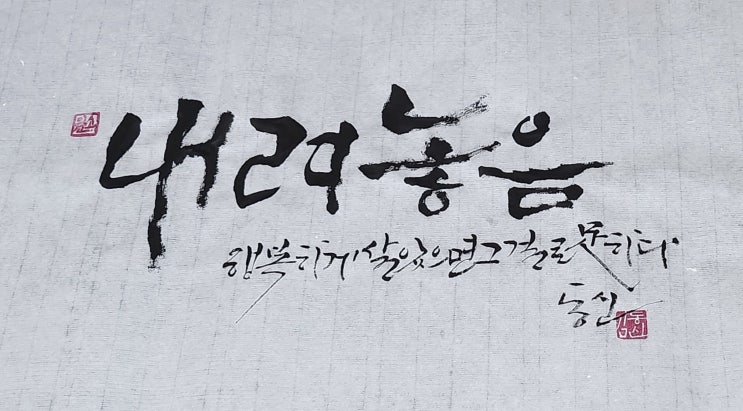 내려놓음
행복하게 살았으면 그걸로 足하다
동신